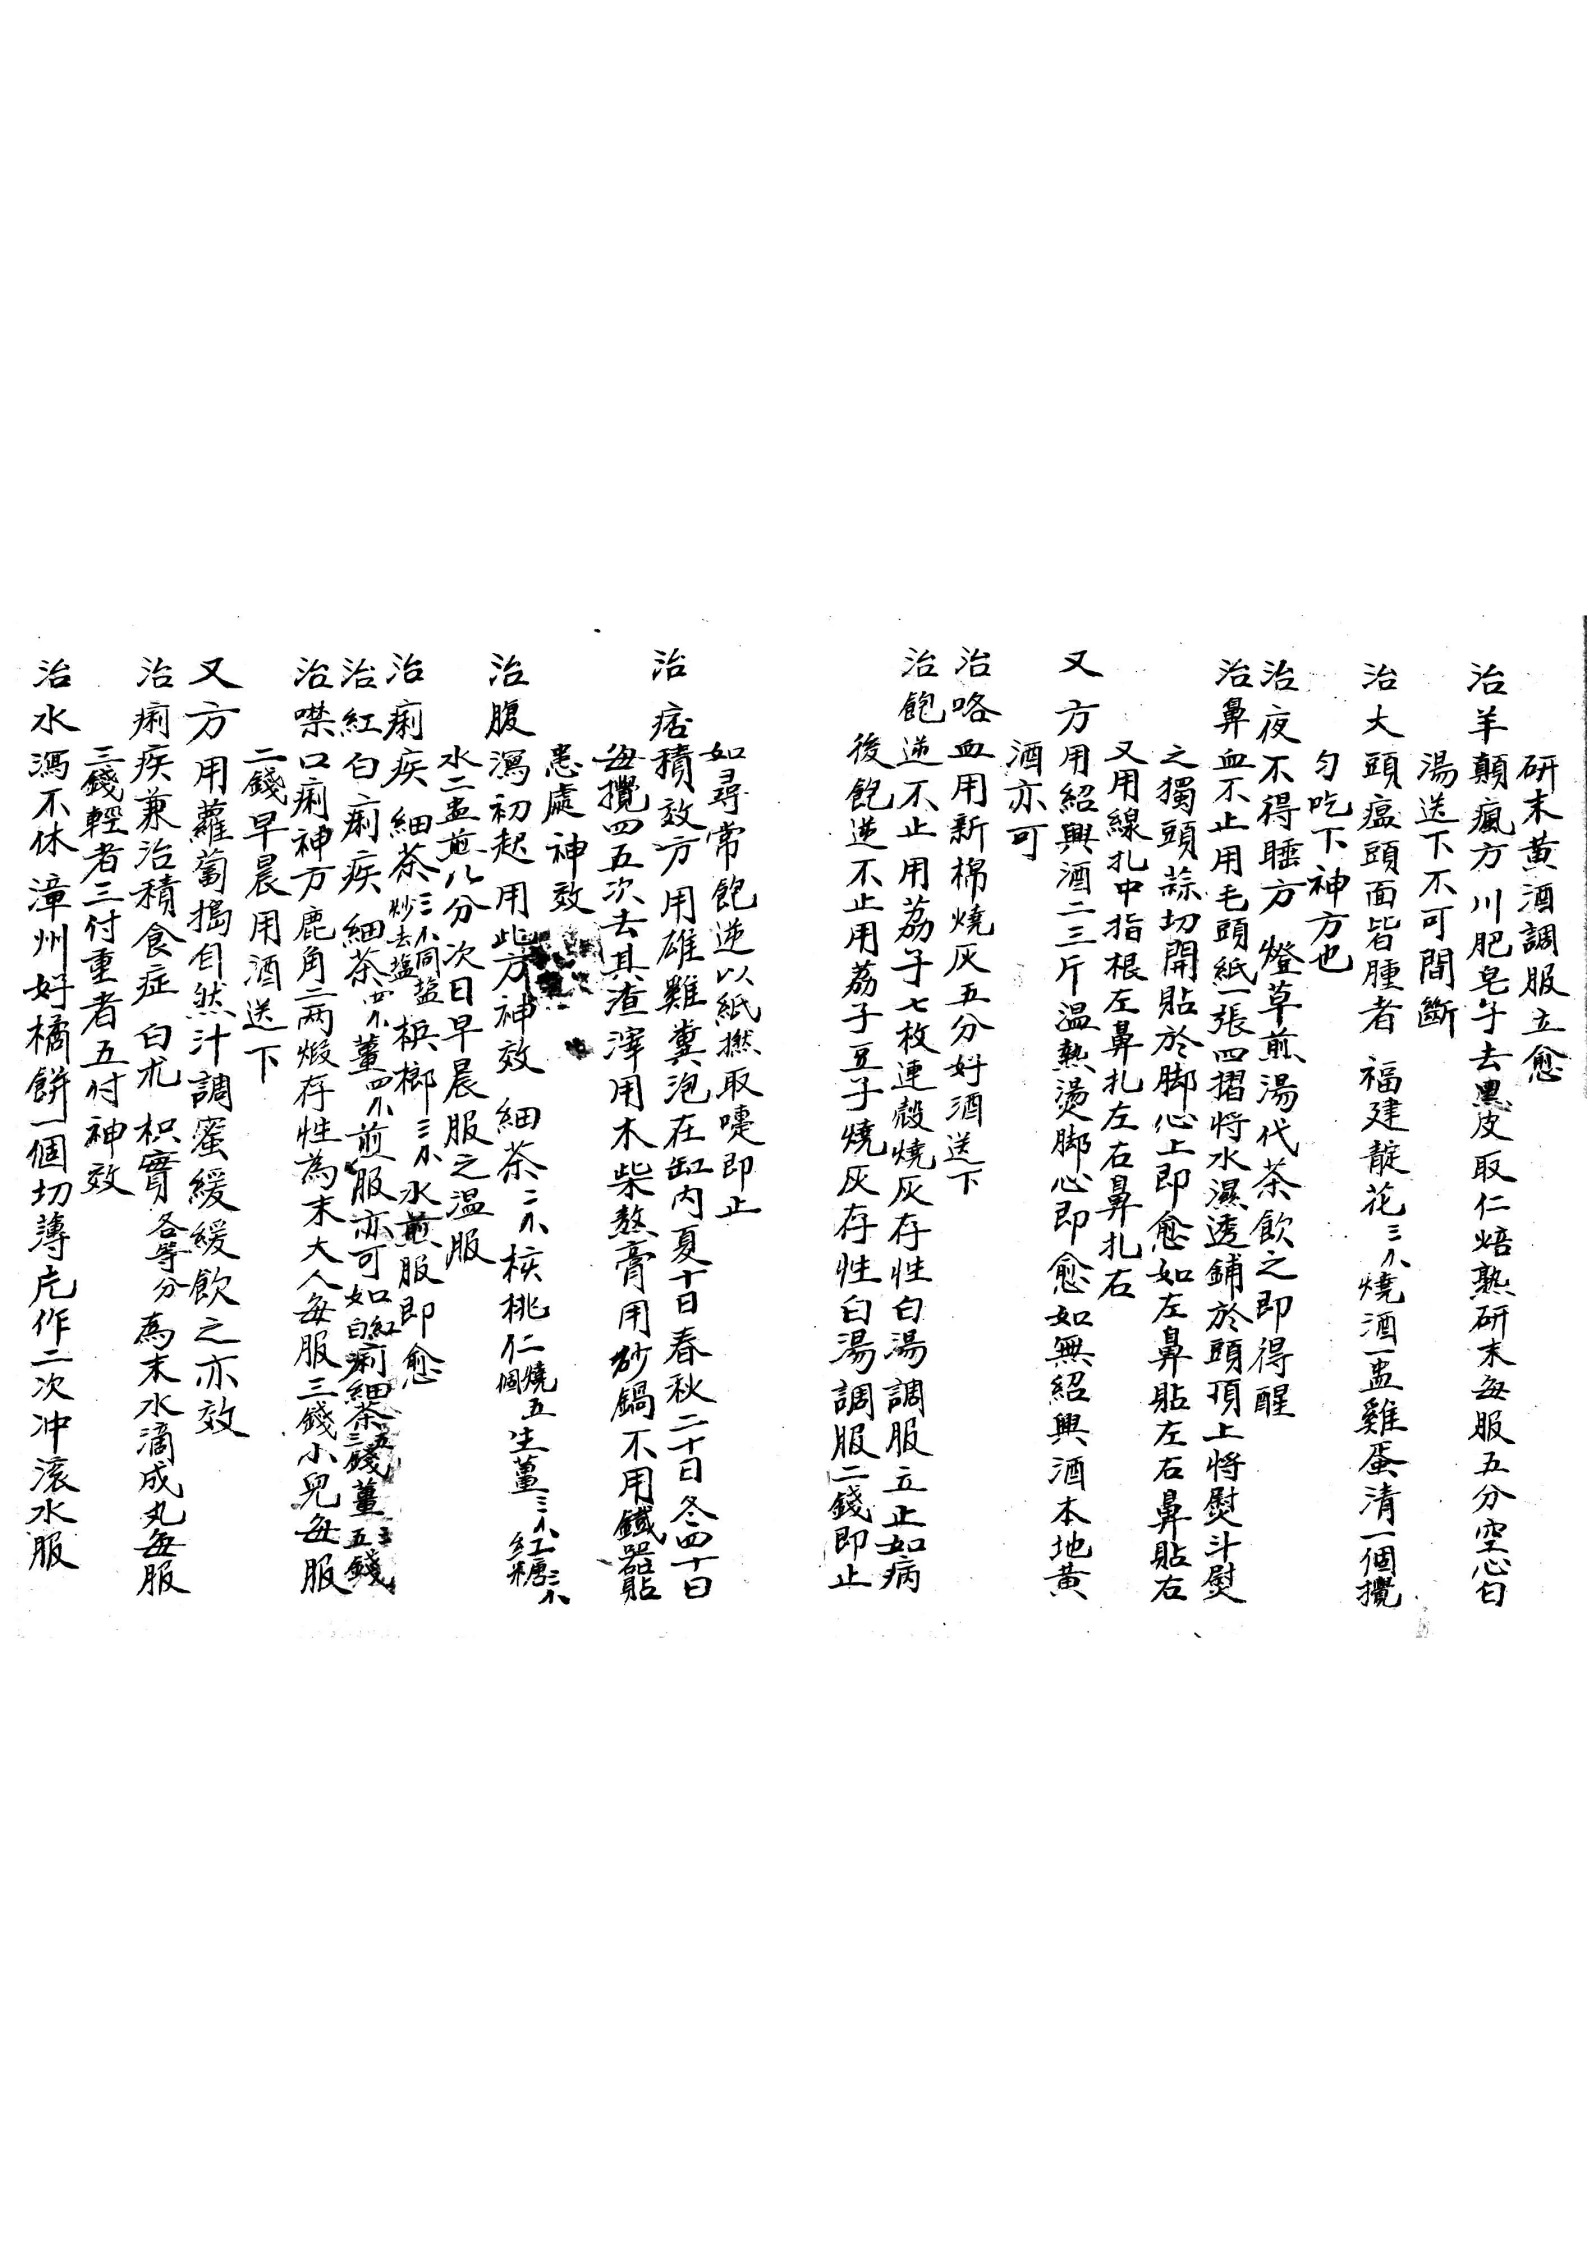 研末黃酒調服立愈
治羊顛瘋方 川肥皂子去黑皮取仁焙熟研末每服五分空心白
湯送下不可間斷
治大頭瘟頭面皆腫者 福建靛花三个燒酒一盅雞蛋清一個攪
勻吃下神方也
治夜不得睡方 燈草煎湯代茶飲之即得醒
治鼻血不止用毛頭紙一張四摺將水濕透鋪於頭頂上將熨斗熨
之獨頭蒜切開貼於脚心上即愈如左鼻貼左右鼻貼右
又用線扎中指根左鼻扎左右鼻扎右
又方用紹興酒二三斤溫熱燙脚心即愈如無紹興酒本地黃
酒亦可
治咯血用新棉燒灰五分好酒送下
治飽逆不止用荔子七枚連殼燒灰存性白湯調服立止如病
後飽逆不止用荔子豆子燒灰存性白湯調服二錢即止
如尋常飽逆以紙撚取嚏即止
治痞積效方用雄雞糞泡在缸內夏十日春秋二十日冬四十日
每攪四五次去其渣滓用木柴熬膏用砂鍋不用鐵器貼
患處神效
治腹瀉初起用此方神效 細茶二个核桃仁燒五個生薑三个紅糖三个
水二盅煎八分次日早晨服之溫服
治痢疾 細茶三个同鹽炒去鹽 梹榔三个水煎服即愈
治紅白痢疾 細茶四个薑四个煎服亦可如紅白痢細茶五三錢薑三五錢
治噤口痢神方鹿角二两煅存性為末大人每服三錢小兒每服
二錢早晨用酒送下
又方用蘿蔔搗自然汁調蜜緩緩飲之亦效
治痢疾兼治積食症 白朮 枳實各等分為末水滴成丸每服
三錢輕者三付重者五付神效
治水瀉不休漳州好橘餅一個切薄片作二次冲滾水服